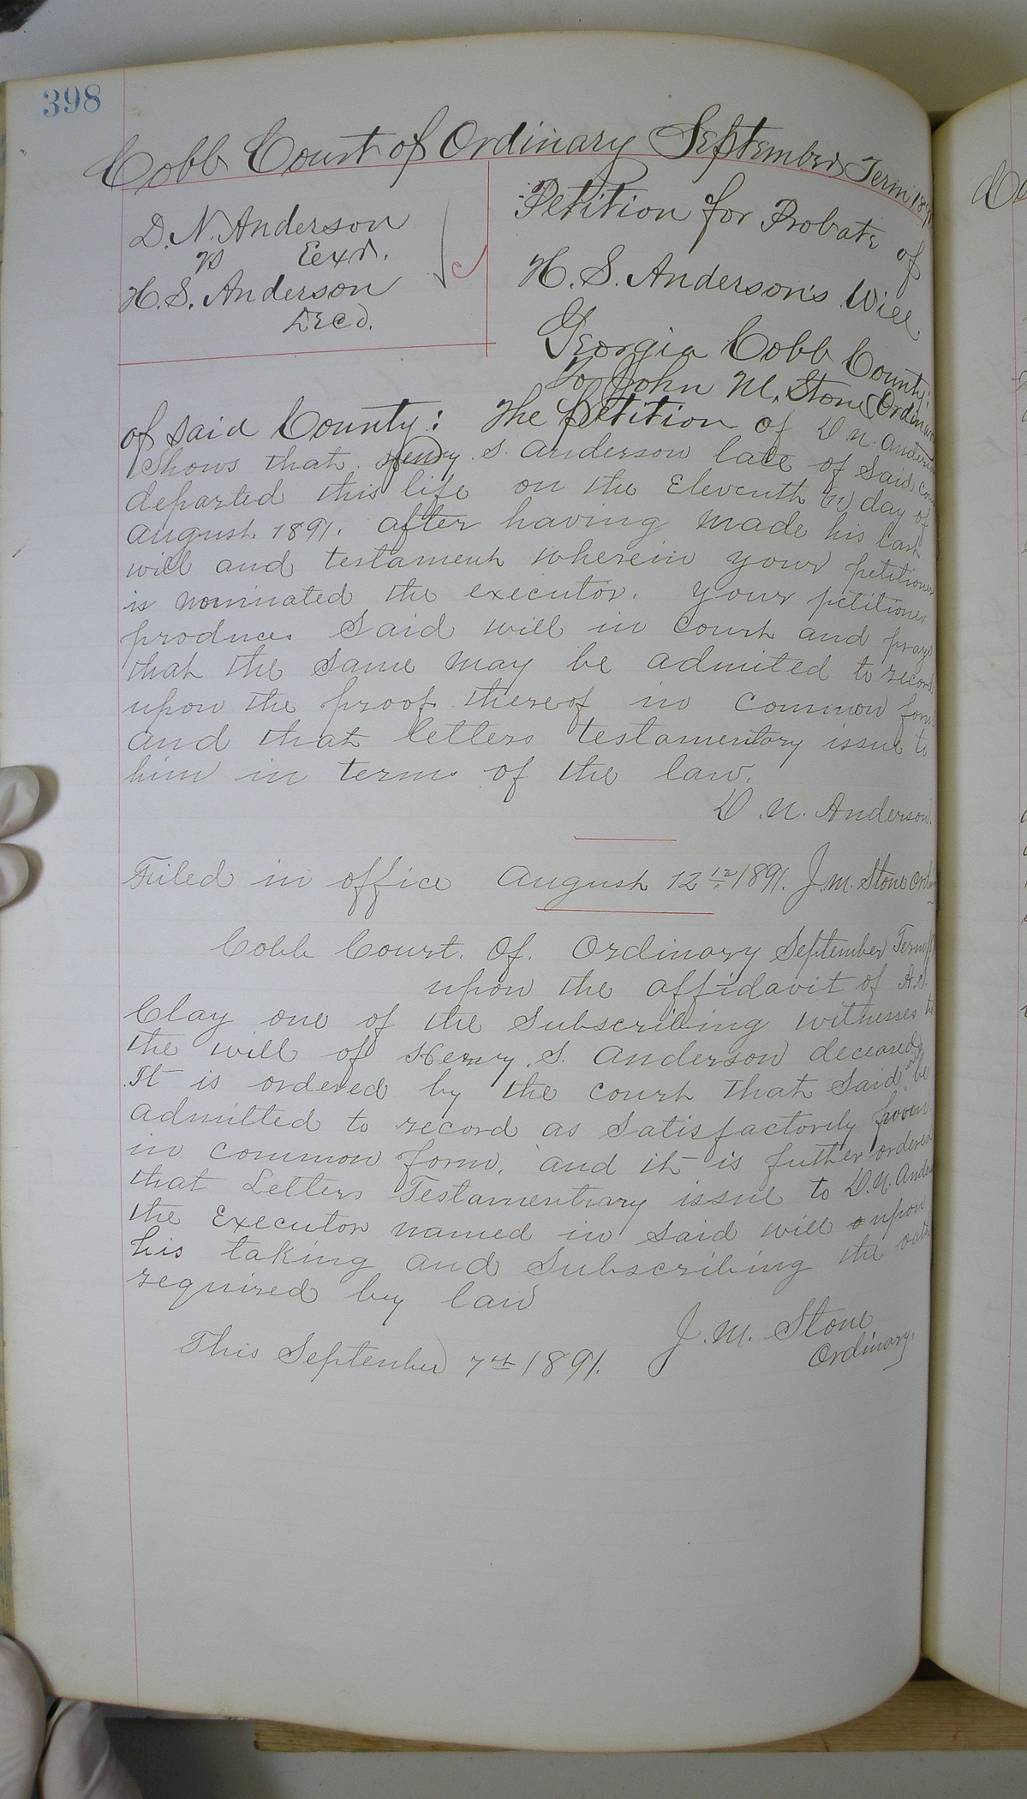 398
Cobb Court of Ordinary September Term 1891
D. N. Anderson
vs Eexr.
H. S. Anderson
Decd.
Petition for Probate of
H. S. Anderson's Will
Georgia Cobb County:
To John M. Stone Ordinary
of said County: The Petition of D N. Anderson
Shows that Henry S. Anderson late of Said
departed this life on the Eleventh day of
August 1891. after having made his last
will and testament wherein your petitioner
is nominated the executor. your petitioner
produces Said will in Court and prays
that the Same may be admited to record
upon the proof thereof in Common form
and that letters testamentory issue to
him in terms of the law.
D. N. Anderson.
Filed in office August 12 1891. J. M. Stone
Cobb Court. Of. Ordinary September Term
upon the affidavit of
Clay one of the Subscribing witnesses to
the will of Henry S. Anderson deceased
It is ordered by the Court that Said will be
admitted to record as Satisfactorily proven
in common form, and it is futher ordered
that Letters Testamentrary issue to D. N.
the Executor named in Said will upon
his taking and Subscribing the oath
required by law
This September 7th 1891. J. M. Stone
Ordinary.